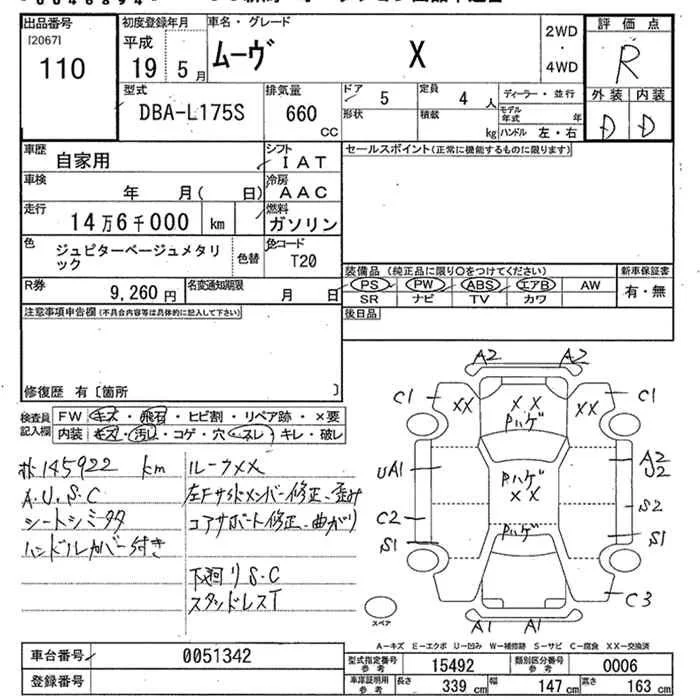 出品番号
[2067]
110
初度登録年月
平成
19 年 5 月
車名・グレード
ムーヴ X
2WD
・
4WD
評価点
R
外装 内装
D D
型式
DBA-L175S
排気量
660 CC
ドア 5
形状
定員 4 人
積載 kg
ディーラー・並行
モデル年式 年
ハンドル 左・右
車歴
自家用
シフト
IAT
車検
年 月( 日)
冷房
AAC
走行
14万6千000 km
燃料
ガソリン
色
ジュピターベージュメタリック
色替
色コード
T20
R券
9,260 円
名変通知期限
月 日
セールスポイント(正常に機能するものに限ります)
装備品 (純正品に限り○をつけてください)
PS PW ABS エアB AW
SR ナビ TV カワ
新車保証書
有・無
後日品
注意事項申告欄(不具合内容等は具体的に記入して下さい)
修復歴 有〔箇所 〕
検査員記入欄
FW キズ・飛石・ヒビ割・リペア跡・×要
内装 キズ・汚レ・コゲ・穴・スレ・キレ・破レ
145922 km
A.U.S.C
シートシミタタ
ハンドルカバー付き
ルーフXX
左Fサイドメンバー修正、歪み
コアサポート修正、曲がり
下廻りS.C
スタッドレスT
A2 A2
C1 XX XX XX C1
Pハゲ
UA1 Pハゲ A2 U2
XX
C2 S2
S1 Pハゲ S1
C3
A1 A1
スペア
A―キズ E―エクボ U―凹み W―補修跡 S―サビ C―腐食 XX―交換済
車台番号 0051342
登録番号
型式指定番号 参考 15492
類別区分番号 参考 0006
車庫証明用 参考 長さ 339 cm 幅 147 cm 高さ 163 cm